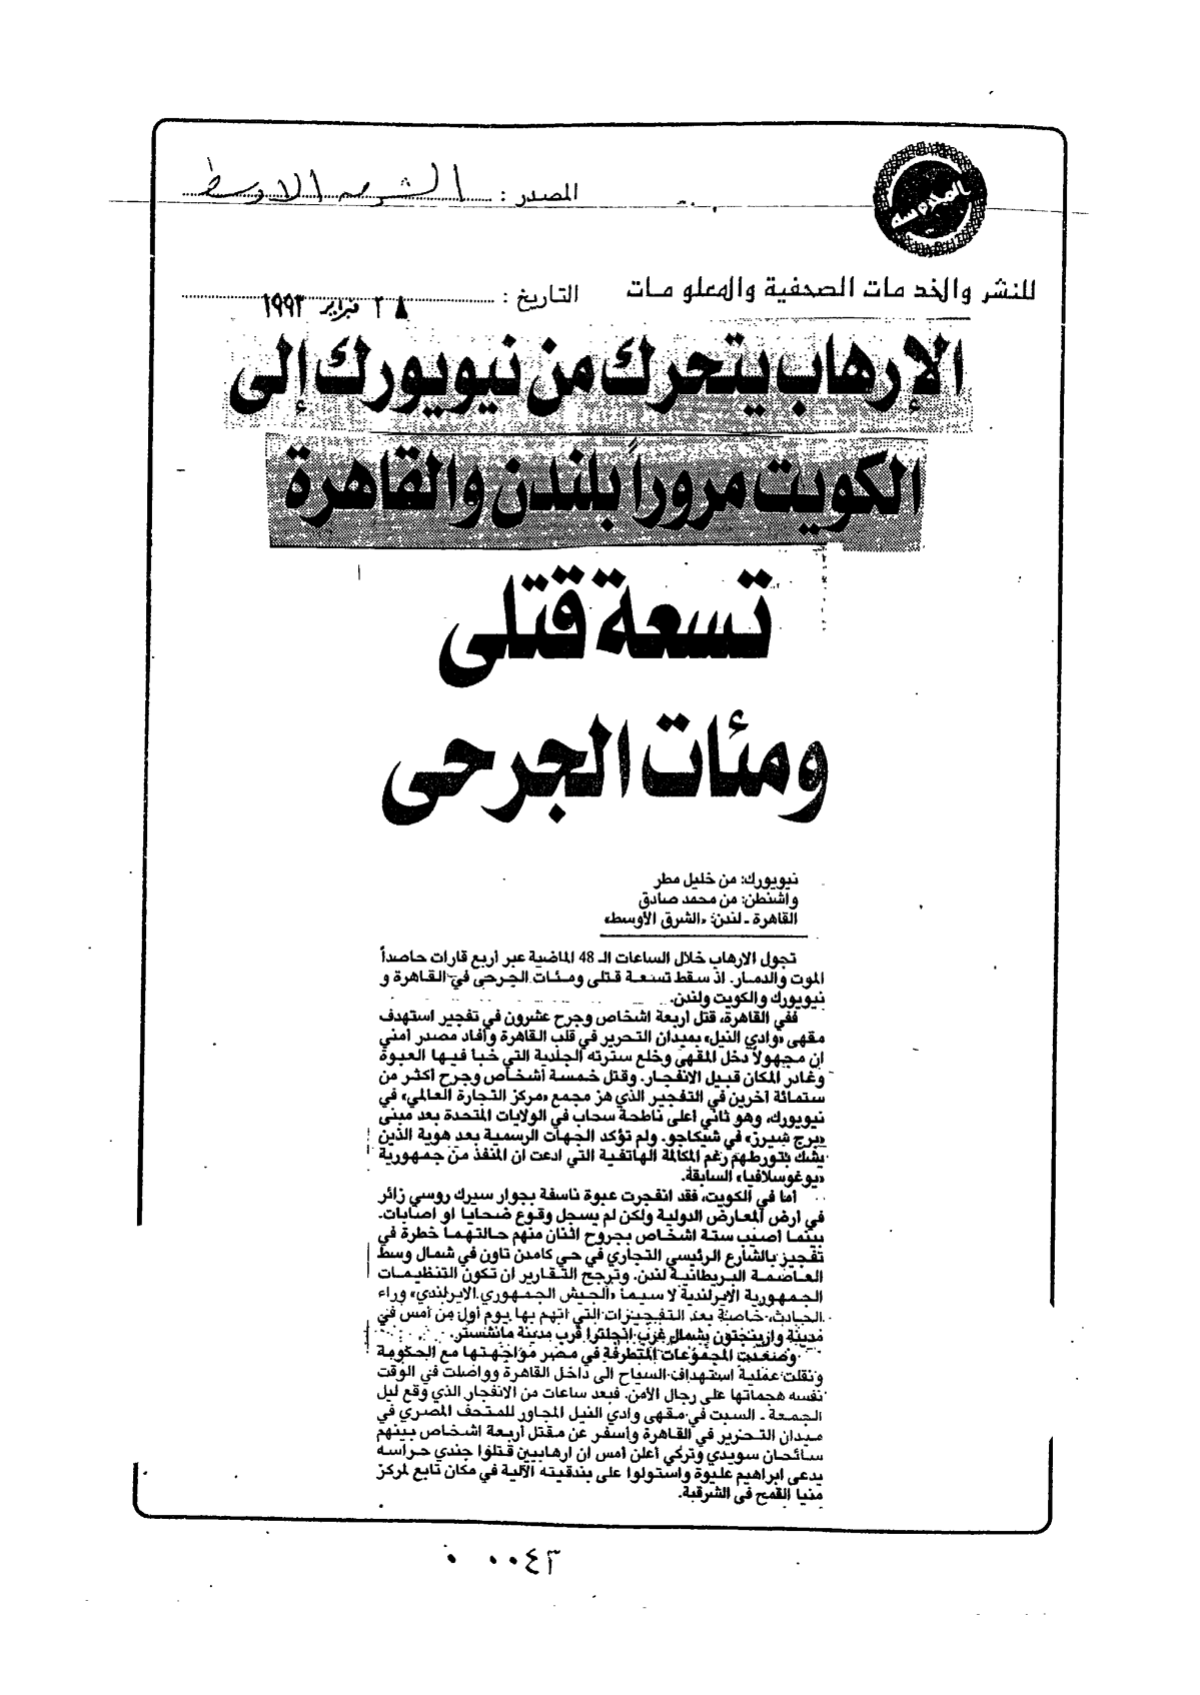 المصدر : الشرق الاوسط
للنشر والخدمات الصحفية والمعلومات
التاريخ : ٢٨ فبراير ١٩٩٣
الإرهاب يتحرك من نيويورك إلى
الكويت مروراً بلندن والقاهرة
تسعة قتلى
ومئات الجرحى
نيويورك: من خليل مطر
واشنطن: من محمد صادق
القاهرة ـ لندن: «الشرق الأوسط»
تجول الارهاب خلال الساعات الـ 48 الماضية عبر أربع قارات حاصداً
الموت والدمار. اذ سقط تسعة قتلى ومئات الجرحى في القاهرة و
نيويورك والكويت ولندن.
ففي القاهرة، قتل أربعة اشخاص وجرح عشرون في تفجير استهدف
مقهى «وادي النيل» بميدان التحرير في قلب القاهرة وأفاد مصدر أمني
ان مجهولاً دخل المقهى وخلع سترته الجلدية التي خبا فيها العبوة
وغادر المكان قبيل الانفجار. وقتل خمسة أشخاص وجرح اكثر من
ستمائة آخرين في التفجير الذي هز مجمع «مركز التجارة العالمي» في
نيويورك، وهو ثاني أعلى ناطحة سحاب في الولايات المتحدة بعد مبنى
«برج شيرز» في شيكاجو. ولم تؤكد الجهات الرسمية بعد هوية الذين
يشك بتورطهم رغم المكالمة الهاتفية التي ادعت ان المنفذ من جمهورية
«يوغوسلافيا» السابقة.
أما في الكويت، فقد انفجرت عبوة ناسفة بجوار سيرك روسي زائر
في أرض المعارض الدولية ولكن لم يسجل وقوع ضحايا او اصابات.
بينما أصيب ستة اشخاص بجروح اثنان منهم حالتهما خطرة في
تفجير بالشارع الرئيسي التجاري في حي كامدن تاون في شمال وسط
العاصمة البريطانية لندن. وترجح التقارير ان تكون التنظيمات
الجمهورية الايرلندية لا سيما «الجيش الجمهوري الايرلندي» وراء
الحادث، خاصة بعد التفجيرات التي اتهم بها يوم أول من أمس في
مدينة وارينجتون بشمال غرب انجلترا قرب مدينة مانشستر.
وصعدت المجموعات المتطرفة في مصر مواجهتها مع الحكومة
ونقلت عملية استهداف السياح الى داخل القاهرة وواصلت في الوقت
نفسه هجماتها على رجال الأمن. فبعد ساعات من الانفجار الذي وقع ليل
الجمعة ـ السبت في مقهى وادي النيل المجاور للمتحف المصري في
ميدان التحرير في القاهرة وأسفر عن مقتل أربعة اشخاص بينهم
سائحان سويدي وتركي أعلن أمس ان ارهابيين قتلوا جندي حراسه
يدعى ابراهيم عليوة واستولوا على بندقيته الآلية في مكان تابع لمركز
منيا القمح في الشرقية.
٠٠٠٤٣